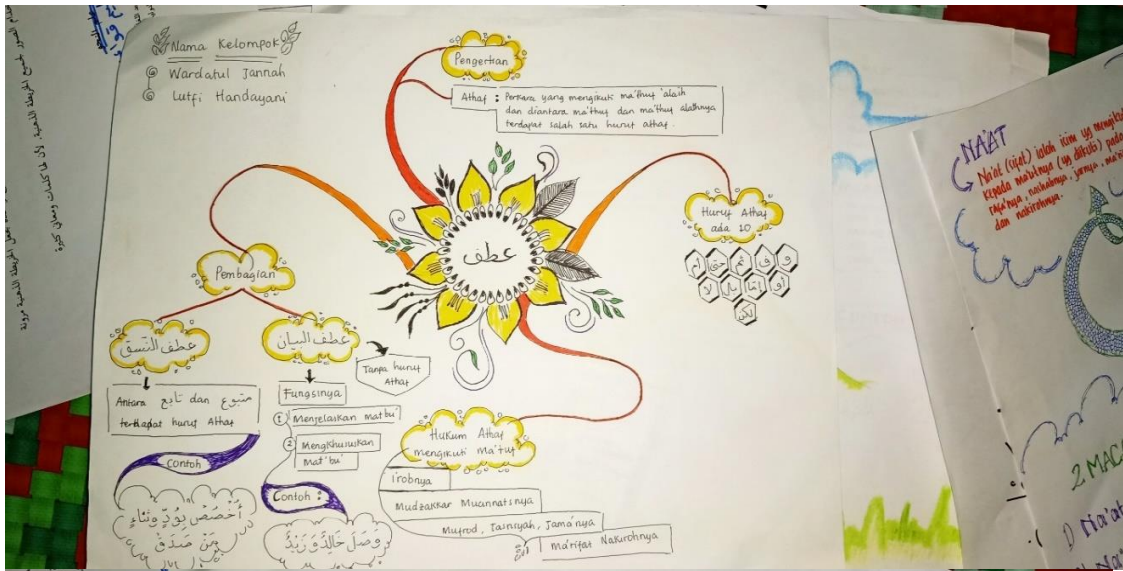 Nama Kelompok
Wardatul Jannah
Lutfi Handayani
Pengertian
Athaf : Perkara yang mengikuti ma'thuf 'alaih
dan diantara ma'thuf dan ma'thuf alaihnya
terdapat salah satu huruf athaf.
عطف
Huruf Athaf
ada 10
و ف ثم حتى أم
أو إمّا بل لا
لكن
Pembagian
عطف النّسق
Antara متبوع dan تابع
terdapat huruf Athaf
Contoh
أَخْصُصْ بِوُدٍّ وثناءٍ
مَنْ صَدَقَ
عطف البيان
Tanpa huruf
Athaf
Fungsinya
1 Menjelaskan matbu'
2 Mengkhususkan
Mat'bu'
Contoh :
وَصَلَ خَالِدٌ وَزَيْدٌ
Hukum Athaf
mengikuti ma'tuf
I'robnya
Mudzakkar Muannatsnya
Mufrod, Tasniyah, Jama'nya
ma'rifat Nakirohnya
NA'AT
Na'at (sifat) ialah isim yg mengikuti
kepada man'utnya (yg diikuti) pada
rafa'nya, nashabnya, jarnya,
dan nakirohnya.
2 MACA
1) Na'at